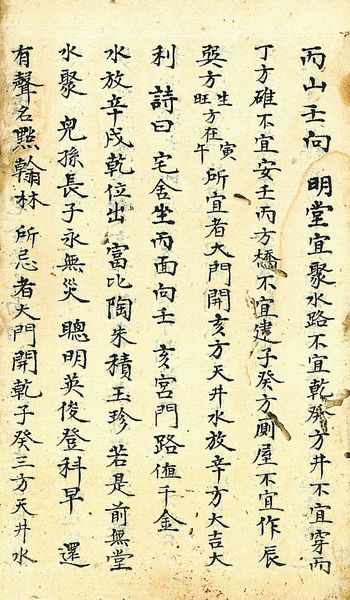 丙山壬向 明堂宜聚水路不宜乾癸方井不宜穿丙
丁方碓不宜安壬丙方橋不宜建子癸方廁屋不宜作辰
巽方生旺方在寅午所宜者大門開亥方天井水放辛方大吉大
利 詩曰 宅舍坐丙面向壬 亥宮門路值千金
水放辛戌乾位出 富比陶朱積玉珍 若是前無堂
水聚 兒孫長子永無災 聰明英俊登科早 還
有聲名點翰林 所忌者大門開乾子癸三方天井水